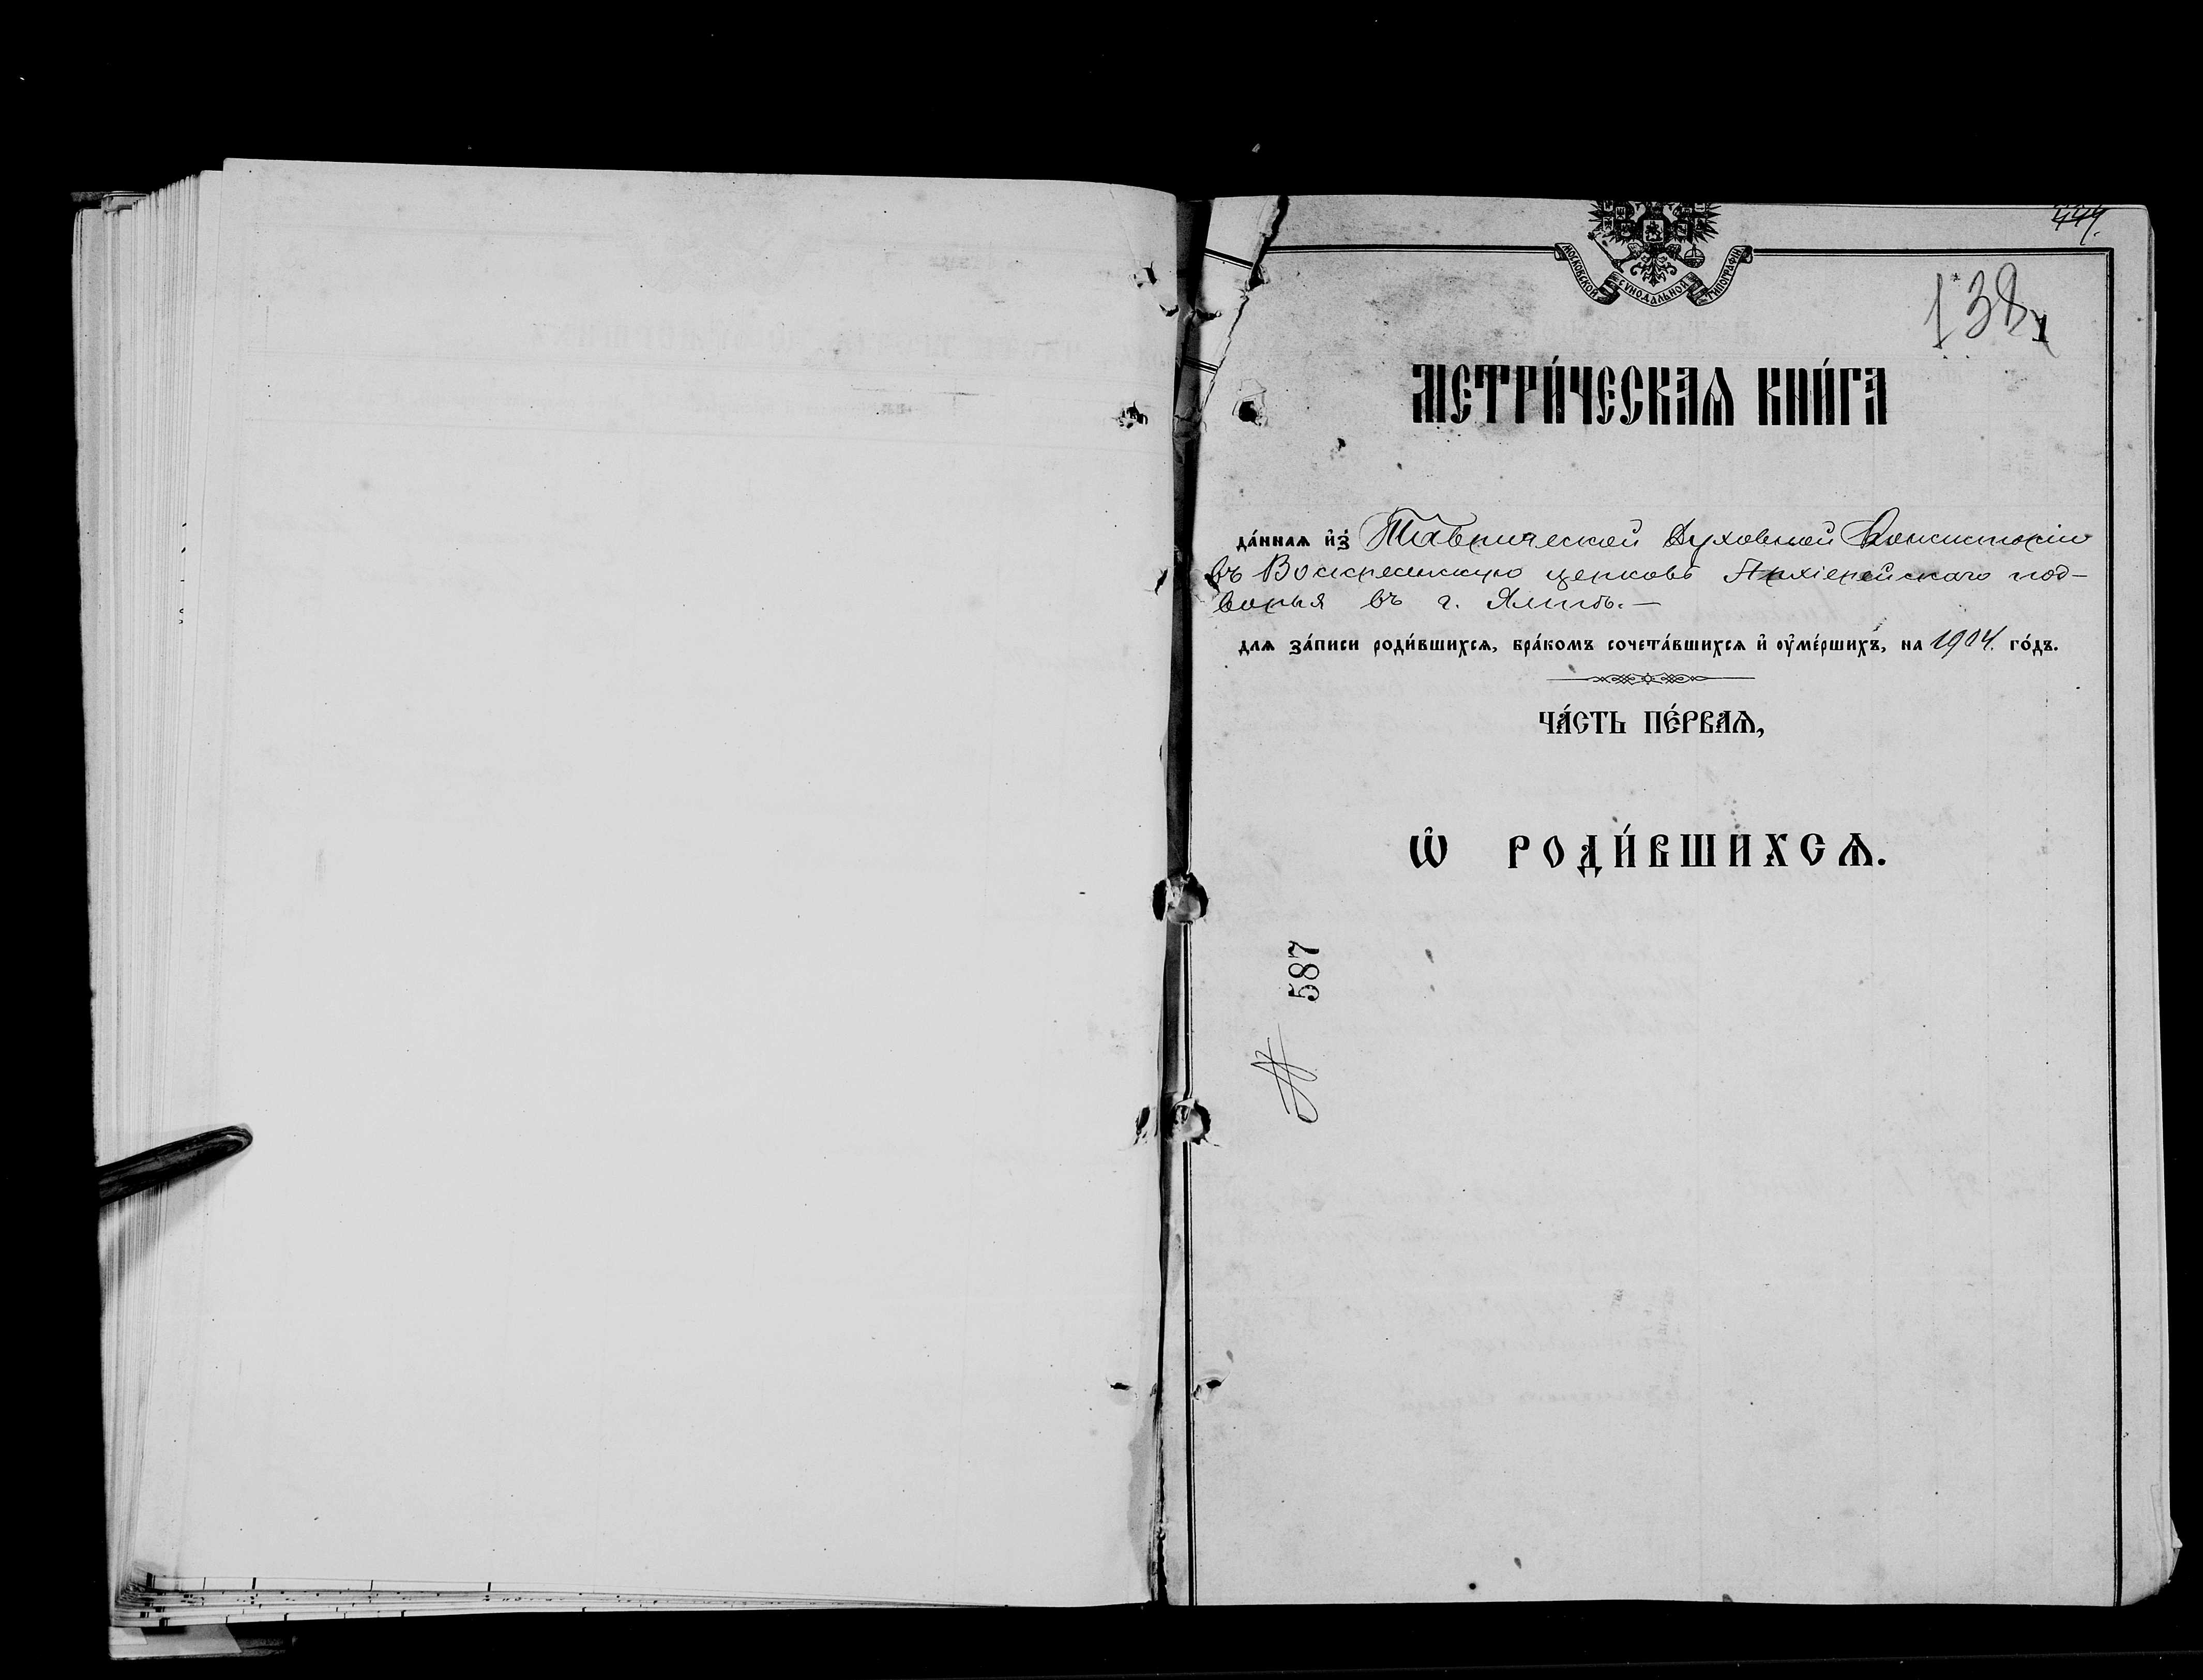 МОСКОВСКОЙ СѴНОДАЛЬНОЙ ТИПОГРАФІИ
138
МЕТРИ́ЧЕСКАѦ КНИ́ГА
да́ннаѧ и҆з̾ Таврической Духовной Консисторіи
въ Воскресенскую церковь Архіерейскаго под-
ворья въ г. Ялтѣ.—
для за́писи роди́вшихсѧ, бра́комъ сочета́вшихсѧ и҆ оу҆ме́ршихъ, на 1904. го́дъ.
ЧА́СТЬ ПЕ́РВАѦ,
Ѡ҆ РОДИ́ВШИХСѦ.
№ 587